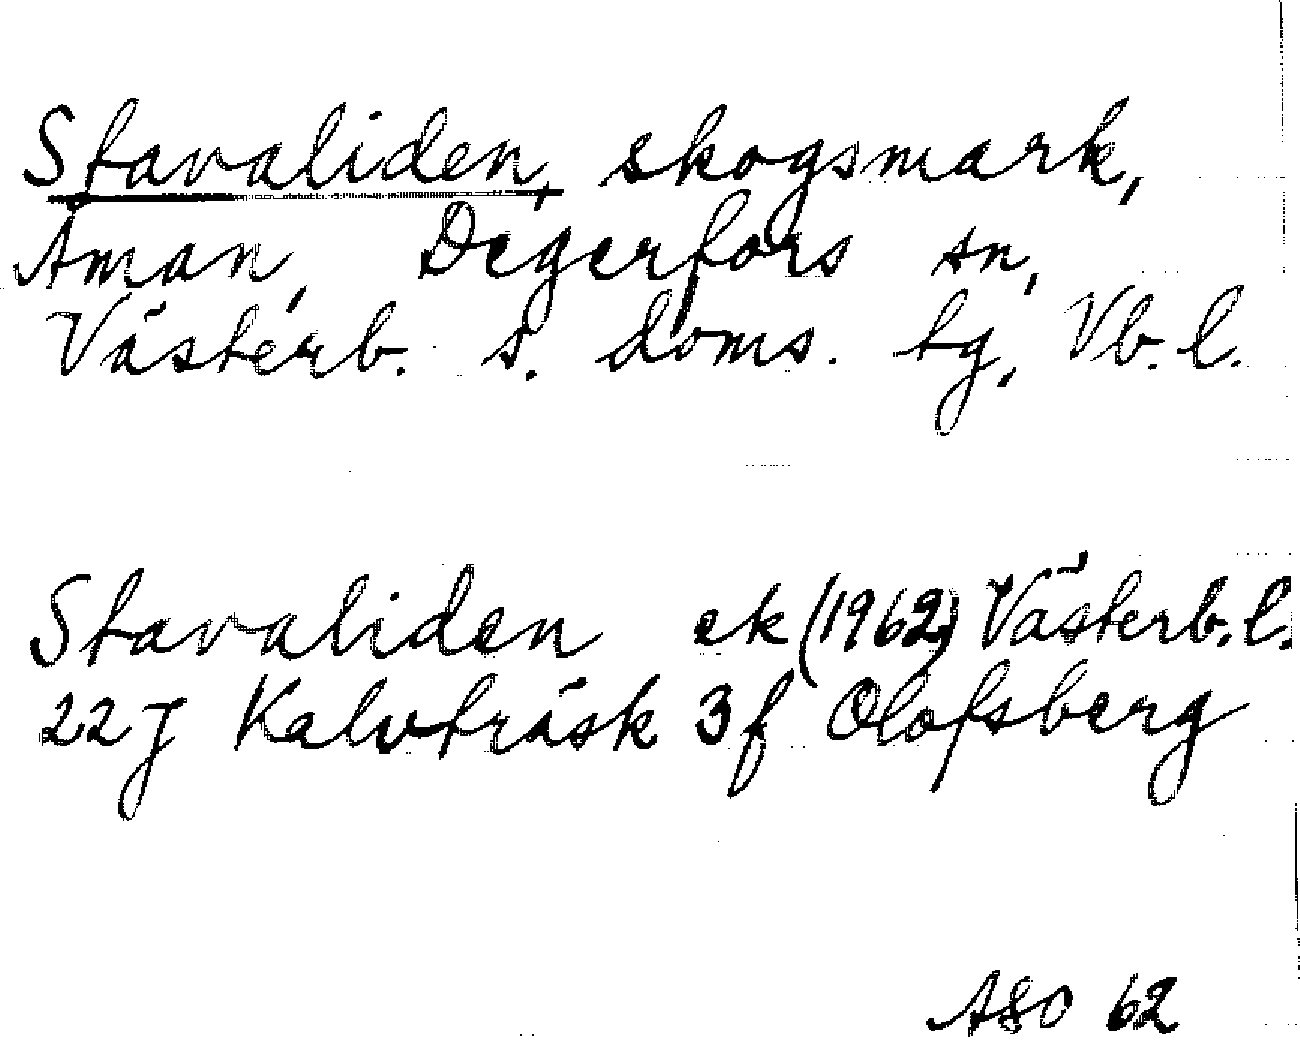 Stavaliden, skogsmark,
Åman, Degerfors sn,
Västerb. s. doms. tg, Vb. l.
Stavaliden ek (1962) Västerb. l.
22J Kalvträsk 3f Olofsberg
ASO 62